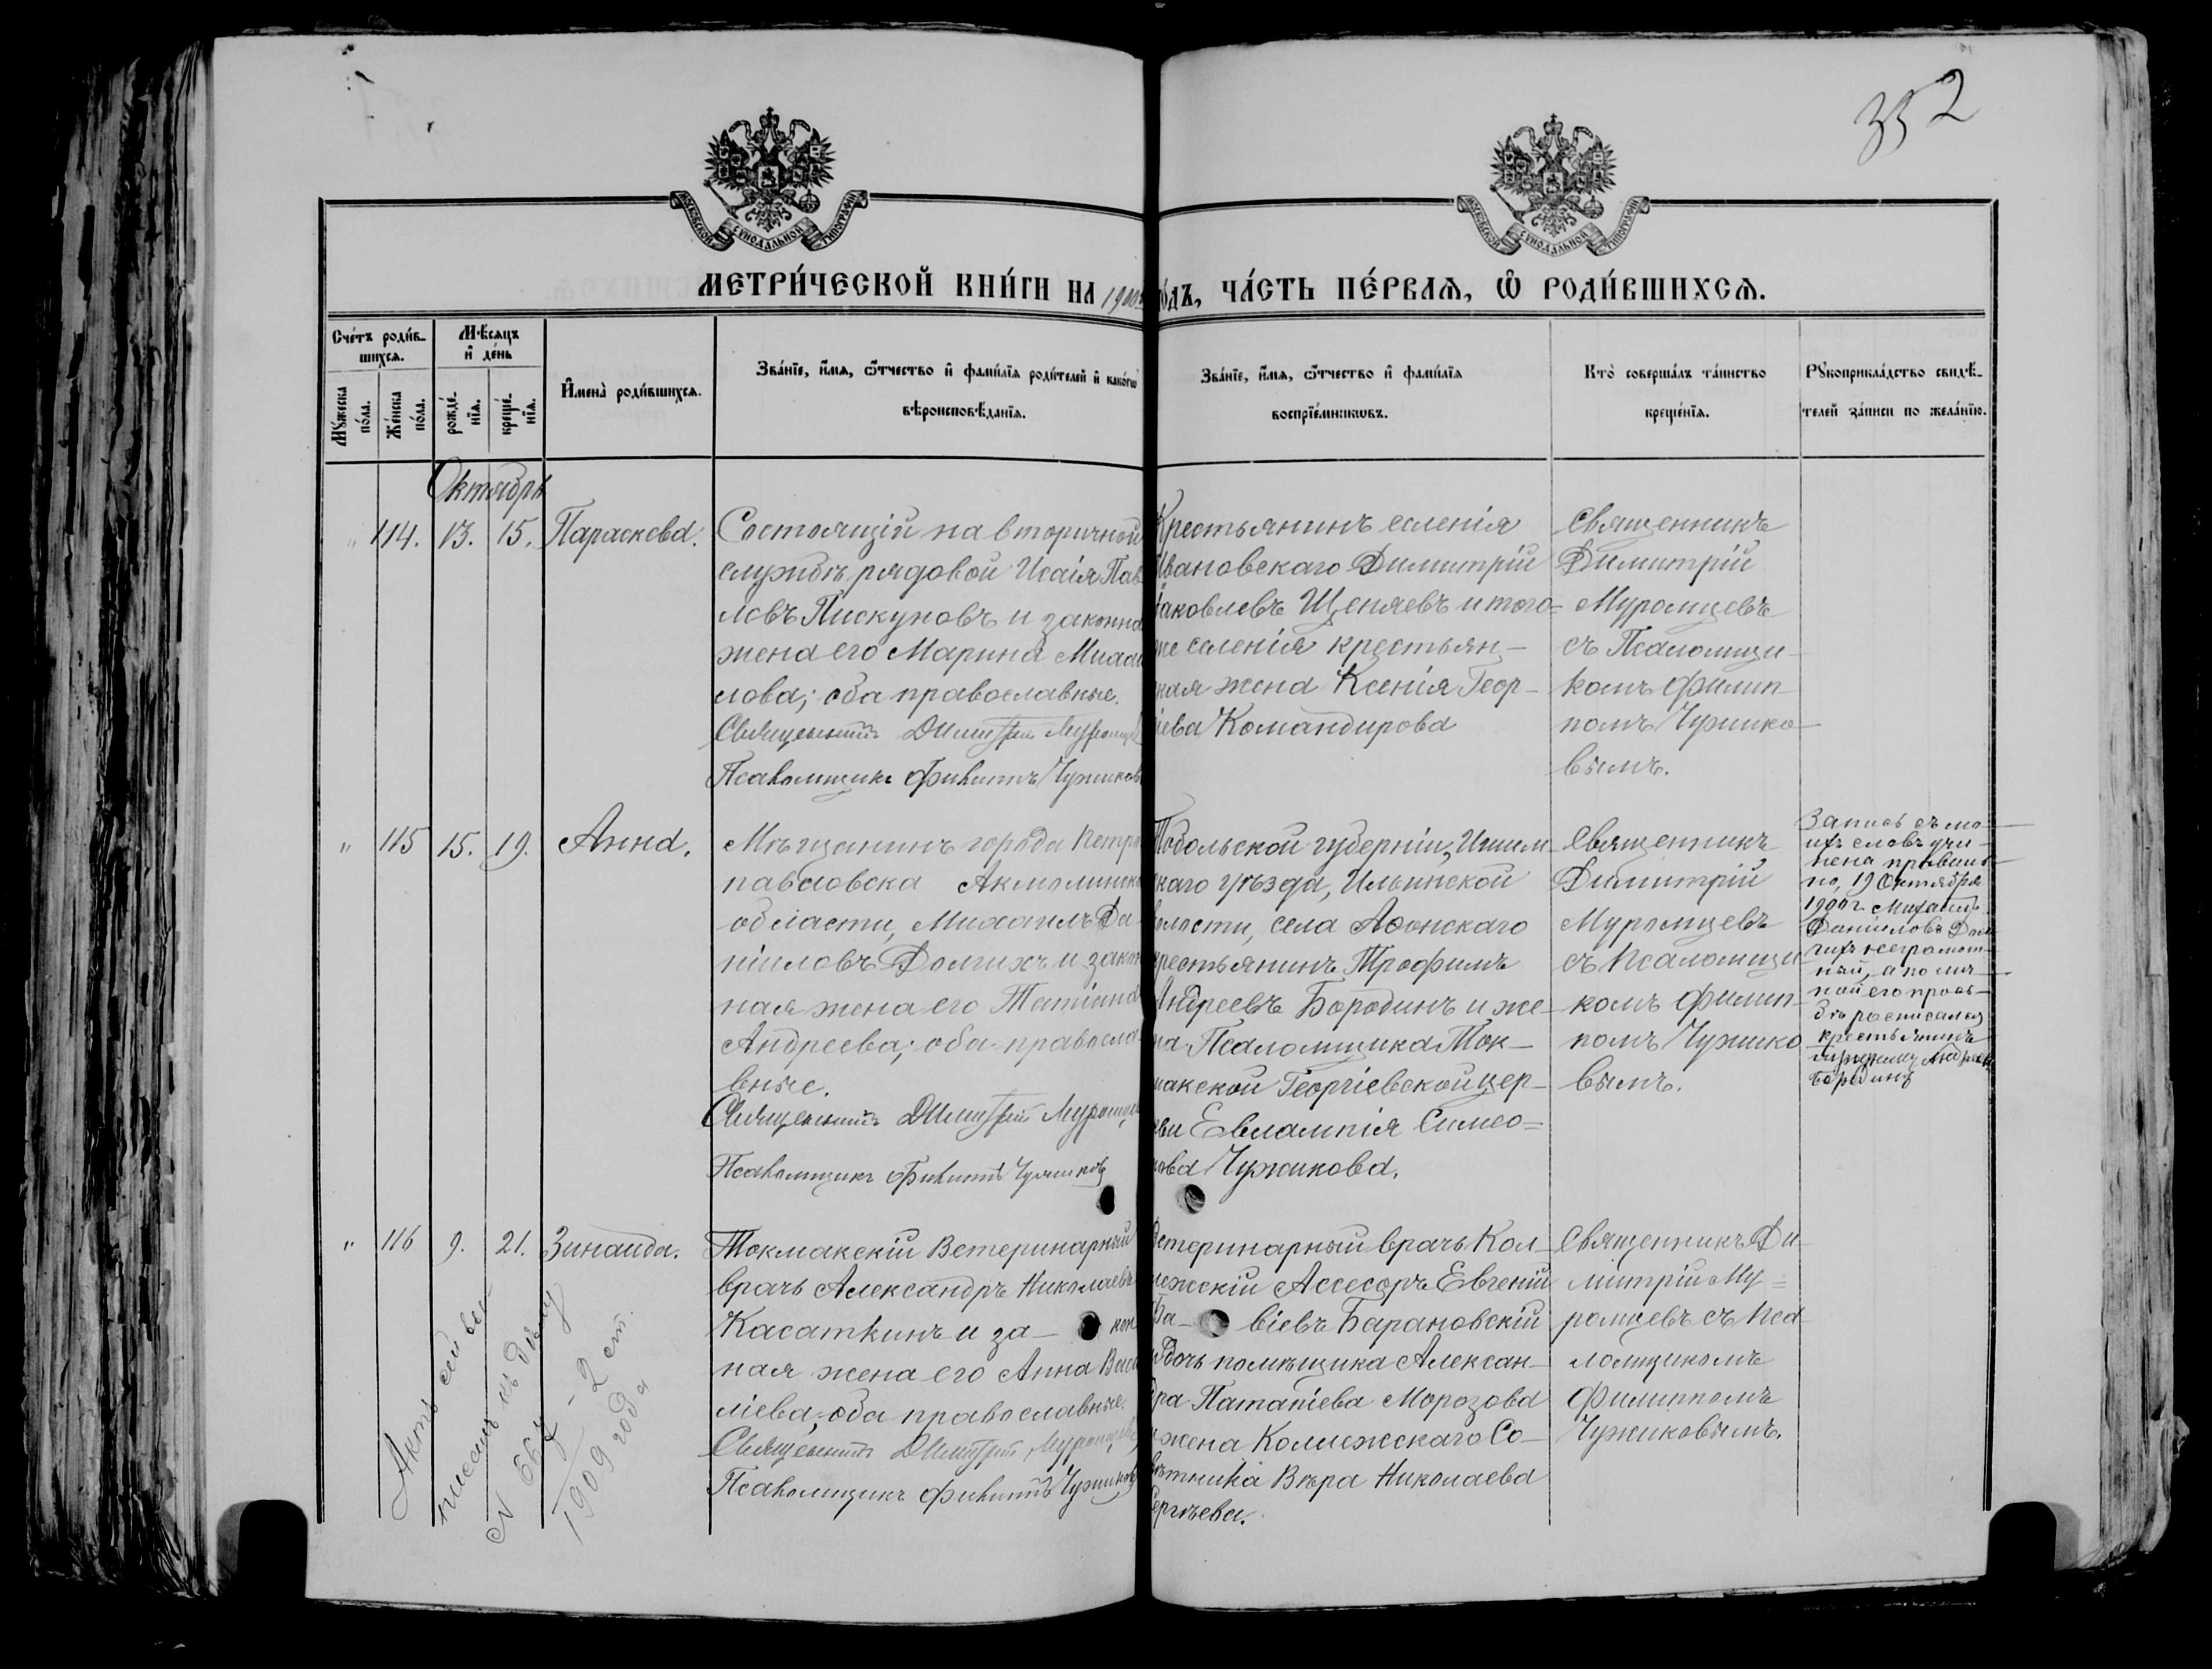 352
МОСКОВСКОЙ СѴНОДАЛЬНОЙ ТИПОГРАФІИ
МОСКОВСКОЙ СѴНОДАЛЬНОЙ ТИПОГРАФІИ
МЕТРИ́ЧЕСКОЙ КНИ́ГИ НА 1900 го́дъ, ЧА́СТЬ ПЕ́РВАЯ, Ѡ РОДИ́ВШИХСЯ.
Сче́тъ роди́в-
шихся.
Мѣ́сяцъ
и́ де́нь
Му́жеска
по́ла.
Же́нска
по́ла.
рожде́-
нія.
креще́-
нія.
И́мена̀ роди́вшихся.
Зва́ніе, и́мя, ѻ́тчество и́ фами́лія роди́телей и́ како́гѡ
вѣроисповѣ́данія.
Зва́ніе, и́мя, ѻ́тчество и́ фами́лія
воспріе́мниковъ.
Кто̀ соверша́лъ та́инство
креще́нія.
Рукоприкла́дство свидѣ́-
телей за́писи по жела́нію.
Октябрь
" 114. 13. 15. Параскева.
Состоящій на вторичной
службѣ рядовой Исаія Пав
ловъ Пискуновъ и законна
жена его Марина Михаи
лова; оба православные.
Священникъ Димитрій Муромцев
Псаломщикъ Филиппъ Чужиковъ
Крестьянинъ селенія
Ивановскаго Димитрій
Яковлевъ Щеняевъ и того-
же селенія крестьян-
ная жена Ксенія Геор-
гіева Командирова
Священникъ
Димитрій
Муромцевъ
съ Псаломщи-
комъ Филип-
помъ Чужико-
вымъ.
" 115 15. 19. Анна.
Мѣщанинъ города Петро
павловска Акмолинск
области, Михаилъ Да-
ніиловъ Долгихъ и закон
ная жена его Татіана
Андреева; оба правосла-
вные.
Священникъ Димитрій Муромцев
Псаломщикъ Филиппъ Чужиковъ
Тобольской губерніи, Ишим-
скаго уѣзда, Ильинской
волости, села Аѳонскаго
крестьянинъ Трофимъ
Андреевъ Бородинъ и же-
на Псаломщика Ток-
макской Георгіевской цер-
кви Евлампія Симео-
нова Чужикова.
Священникъ
Димитрій
Муромцевъ
съ Псаломщи
комъ Филип-
помъ Чужико-
вымъ.
Запись съ мо-
ихъ словъ учи-
нена правиль-
но, 19 Октября
1900 г. Михаилъ
Даніиловъ Дол-
гихъ неграмот-
ный, а по лич-
ной его прось-
бѣ росписался
крестьянинъ
Андреевъ
Бородинъ
" 116 9. 21. Зинаида.
Токмакскій Ветеринарный
врачъ Александръ Николаевъ
Касаткинъ и за- кон
ная жена его Анна Васи
ліева, оба православные.
Священникъ Димитрій Муромцевъ
Псаломщикъ Филиппъ Чужиковъ
Ветеринарный врачъ Кол-
лежскій Ассесоръ Евгеній
віевъ Барановскій
дочь помѣщика Алексан-
дра Патапіева Морозова
и жена Коллежскаго Со-
вѣтника Вѣра Николаева
Сергѣева.
Священникъ Ди-
митрій Му-
ромцевъ съ Пса-
ломщикомъ
Филиппомъ
Чужиковымъ.
Актъ сей вы-
писанъ къ дѣлу
N 667 - 2 ст.
1909 года